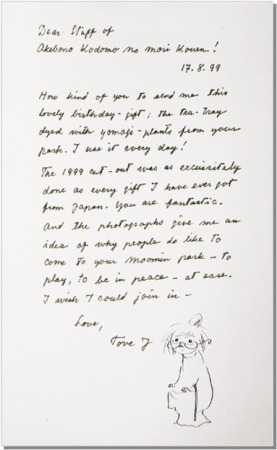 Dear Staff of
Akebono Kodomo no mori Kouen!
17.8.99
How kind of you to send me this
lovely birthday-gift; the tea-Tray
dyed with yomogi-plants from your
park. I use it every day!
The 1999 cut-out was as excuisitely
done as every gift I have ever got
from Japan. You are fantastic.
And the photographs give me an
idea of why people do like to
come to your Moomin park – to
play, to be in peace – at ease.
I wish I could join in –
Love,
Tove J